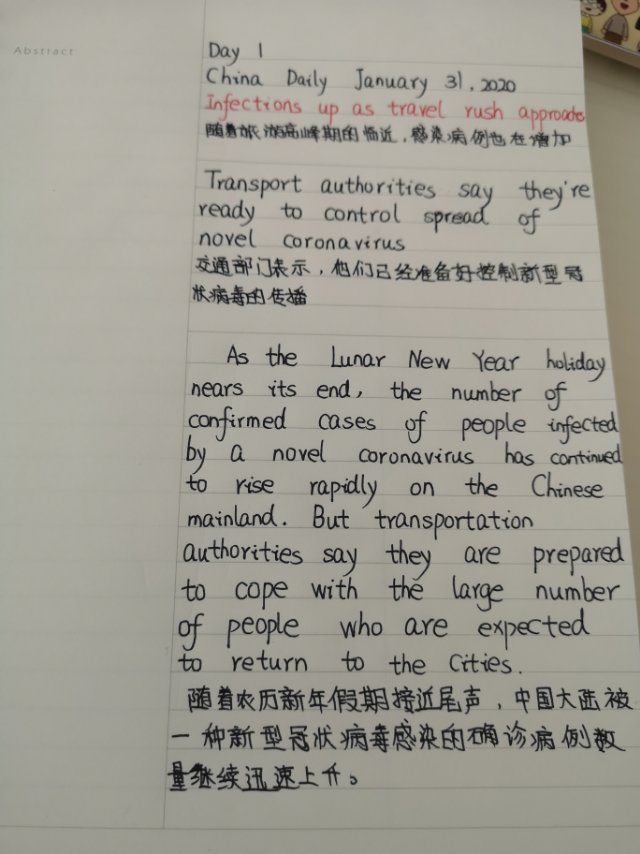 Abstract
Day 1
China Daily January 31, 2020
Infections up as travel rush approachs
随着旅游高峰期的临近，感染病例也在增加
Transport authorities say they're
ready to control spread of
novel coronavirus
交通部门表示，他们已经准备好控制新型冠
状病毒的传播
As the Lunar New Year holiday
nears its end, the number of
confirmed cases of people infected
by a novel coronavirus has continued
to rise rapidly on the Chinese
mainland. But transportation
authorities say they are prepared
to cope with the large number
of people who are expected
to return to the Cities.
随着农历新年假期接近尾声，中国大陆被
一种新型冠状病毒感染的确诊病例数
量继续迅速上升。